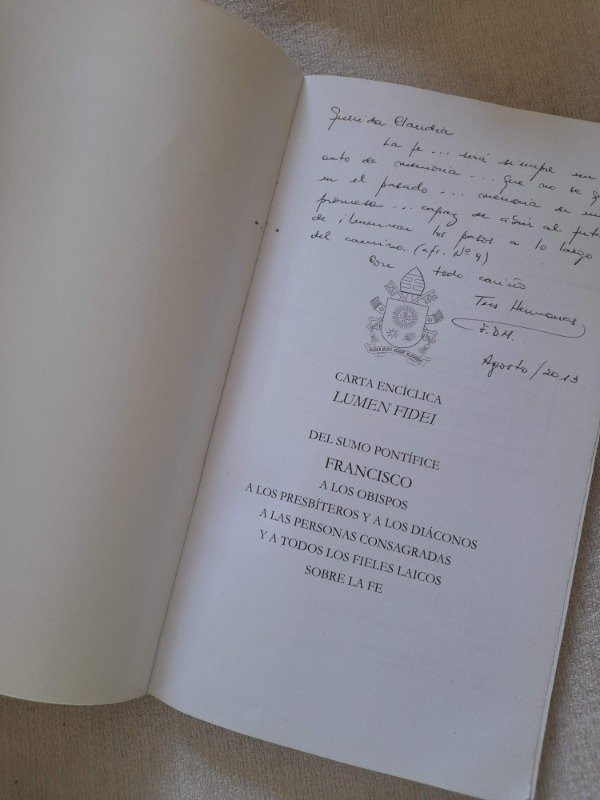 Querida Claudia
La fe ... será siempre un
acto de memoria ... que no se
en el pasado ... memoria de
promesa ... capaz de abrir al
de iluminar los pasos a lo largo
del camino. (cfr. Nº 9)
Con todo cariño
Tus Hermanas
F.D.M.
Agosto/2013
CARTA ENCÍCLICA
LUMEN FIDEI
DEL SUMO PONTÍFICE
FRANCISCO
A LOS OBISPOS
A LOS PRESBÍTEROS Y A LOS DIÁCONOS
A LAS PERSONAS CONSAGRADAS
Y A TODOS LOS FIELES LAICOS
SOBRE LA FE